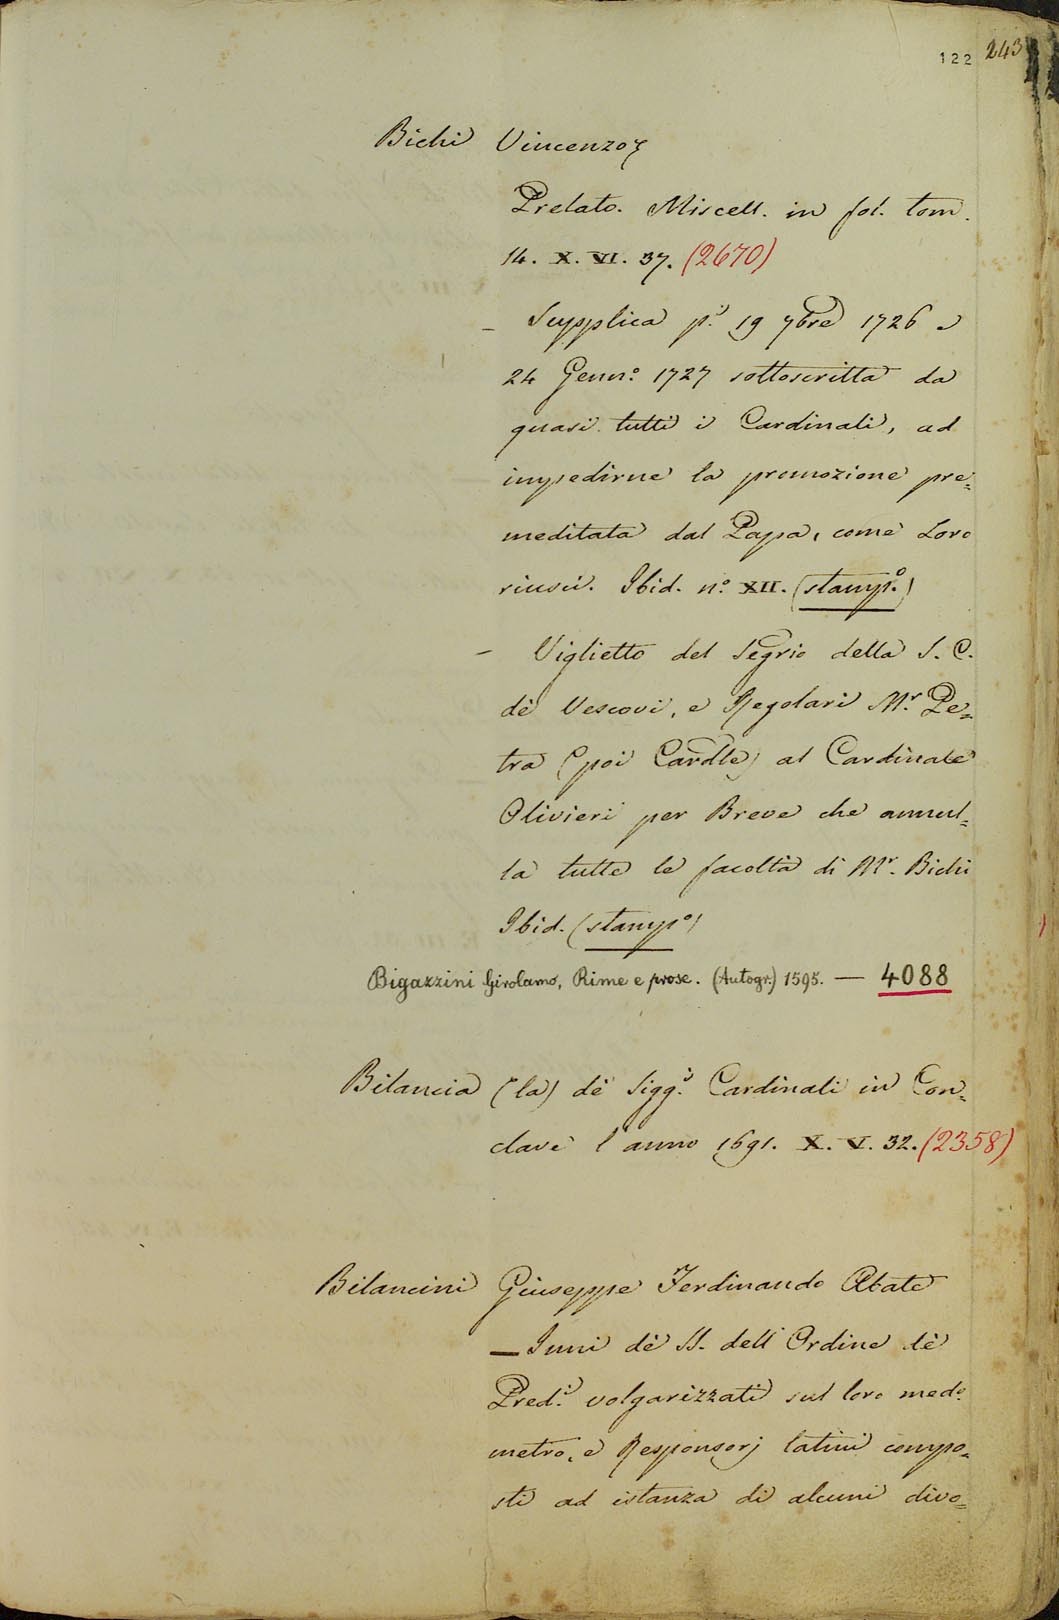 122 243
Bichi Vincenzo
Prelato. Miscell. in fol. tom.
14. X. VI. 37. (2670)
– Supplica p.i 19 7bre 1726 e
24 Genn.o 1727 sottoscritta da
quasi tutti i Cardinali, ad
impedirne la promozione pre=
meditata dal Papa, come Loro
riuscì. Ibid. n.o XII. (stamp.o)
– Viglietto del Segrio della S. C.
dè Vescovi, e Regolari M.r Pe=
tra (poi Cardle) al Cardinale
Olivieri per Breve che annul=
la tutte le facoltà di M.r Bichi
Ibid. (stamp.o)
Bigazzini Girolamo, Rime e prose. (Autogr.) 1595. — 4088
Bilancia (la) dè Sigg.i Cardinali in Con=
clave l'anno 1691. X. V. 32. (2358)
Bilancini Giuseppe Ferdinando Abate
— Inni dè SS. dell'Ordine dè
Pred.i volgarizzati sul loro med.o
metro, e Responsorj latini compo=
sti ad istanza di alcuni divo=